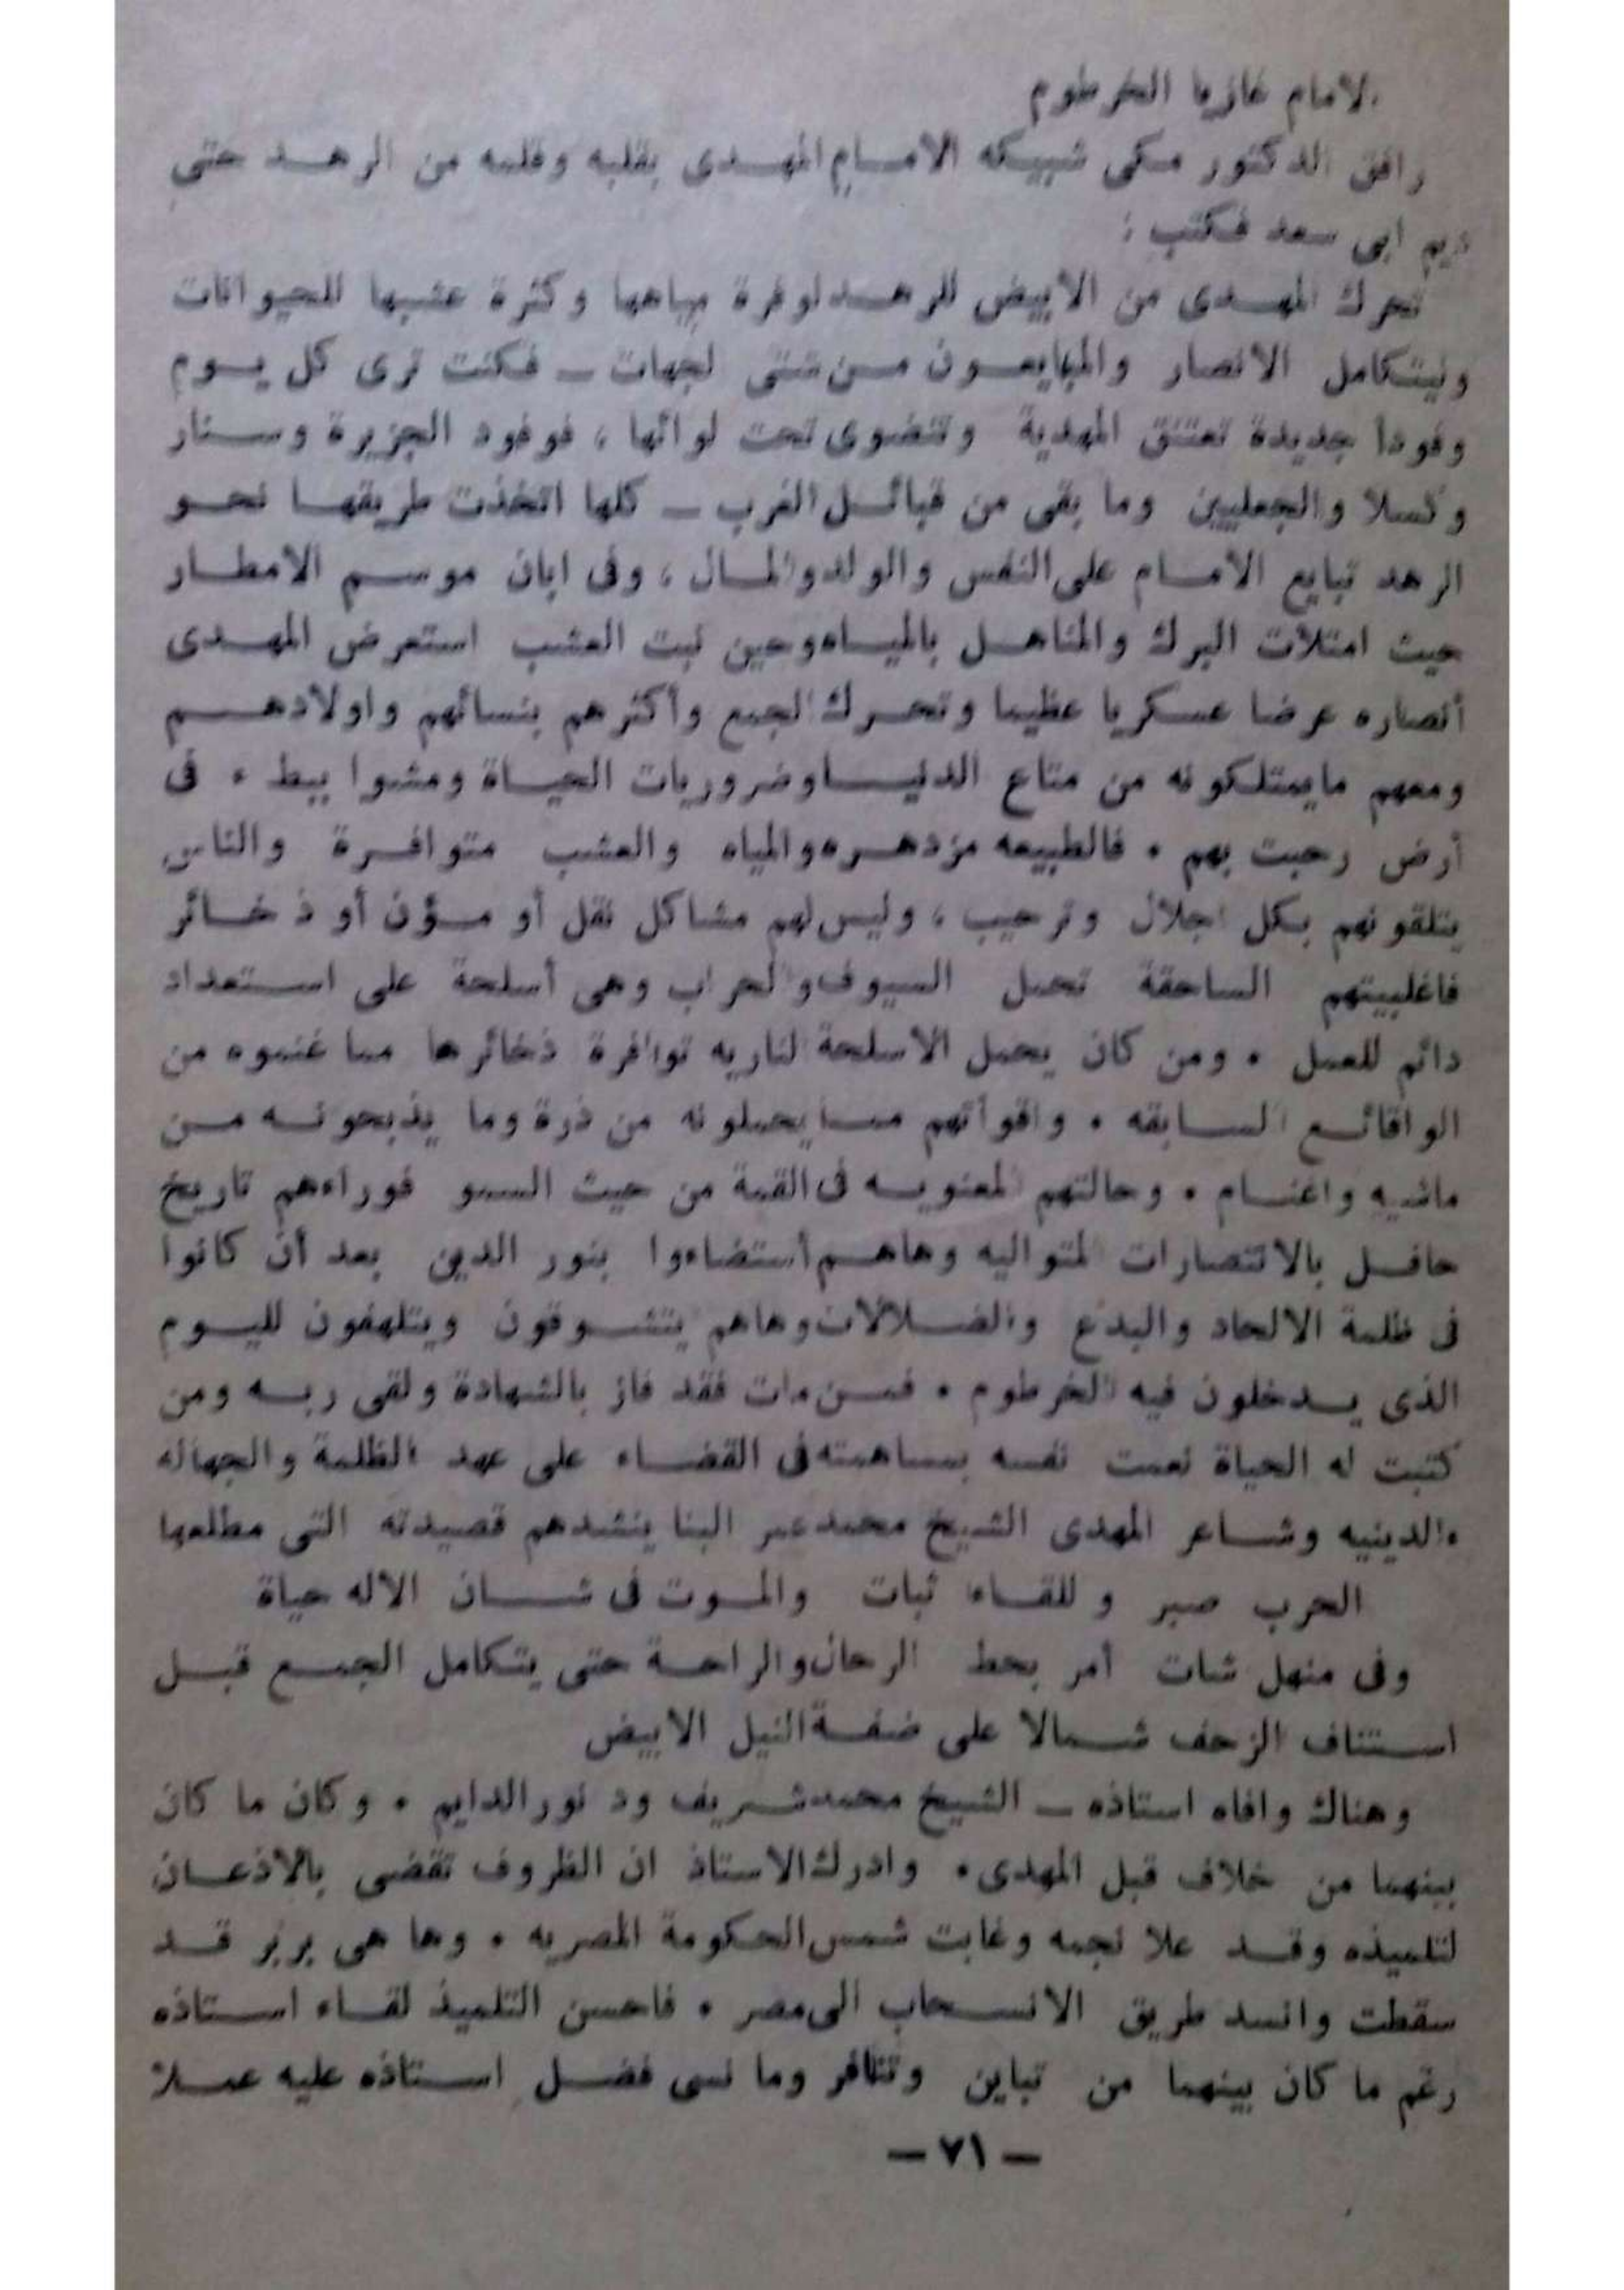 الامام غازيا الخرطوم
رافق الدكتور مكى شبيكه الامام المهدى بقلبه وقلمه من الرهد حتى
ديم ابى سعد فكتب :
تحرك المهدى من الابيض للرهد لوفرة مياهها وكثرة عشبها للحيوانات
وليتكامل الانصار والمبايعون من شتى لجهات ــ فكنت ترى كل يوم
وفودا جديدة تعتنق المهدية وتنضوى تحت لوائها ، فوفود الجزيرة وسنار
وكسلا والجعليين وما بقى من قبائل الغرب ــ كلها اتخذت طريقها نحو
الرهد تبايع الامام على النفس والولد والمال ، وفى ابان موسم الامطار
حيث امتلات البرك والمناهل بالمياه وحين نبت العشب استعرض المهدى
أنصاره عرضا عسكريا عظيما وتحرك الجمع وأكثرهم بنسائهم واولادهم
ومعهم مايمتلكونه من متاع الدنيا وضروريات الحياة ومشوا ببطء فى
أرض رحبت بهم . فالطبيعه مزدهره والمياه والعشب متوافرة والناس
يتلقونهم بكل اجلال وترحيب ، وليس لهم مشاكل نقل أو مؤن أو ذخائر
فاغلبيتهم الساحقة تحمل السيوف والحراب وهى أسلحة على استعداد
دائم للعمل . ومن كان يحمل الاسلحة لناريه توافرة ذخائرها مما غنموه من
الواقائع السابقه . واقواتهم مما يحملونه من ذرة وما يذبحونه من
ماشيه واغنام . وحالتهم لمعنويه فى القمة من حيث السمو فوراءهم تاريخ
حافل بالانتصارات المتواليه وهاهم أستضاءوا بنور الدين بعد أن كانوا
فى ظلمة الالحاد والبدع والضلالات وهاهم يتشوقون ويتلهفون لليوم
الذى يدخلون فيه الخرطوم . فمن مات فقد فاز بالشهادة ولقى ربه ومن
كتبت له الحياة نعمت نفسه بمساهمته فى القضاء على عهد الظلمة والجهاله
الدينيه وشاعر المهدى الشيخ محمد عمر البنا ينشدهم قصيدته التى مطلعها
الحرب صبر وللقاء ثبات والموت فى شان الاله حياة
وفى منهل شات أمر بحط الرحال والراحة حتى يتكامل الجمع قبل
استئناف الزحف شمالا على ضفة النيل الابيض
وهناك وافاه استاذه ــ الشيخ محمد شريف ود نور الدايم . وكان ما كان
بينهما من خلاف قبل المهدى . وادرك الاستاذ ان الظروف تقضى بالاذعان
لتلميذه وقد علا نجمه وغابت شمس الحكومة المصريه . وها هى بربر قد
سقطت وانسد طريق الانسحاب الى مصر . فاحسن التلميذ لقاء استاذه
رغم ما كان بينهما من تباين وتنافر وما نسى فضل استاذه عليه عملا
ــ ٧١ ــ